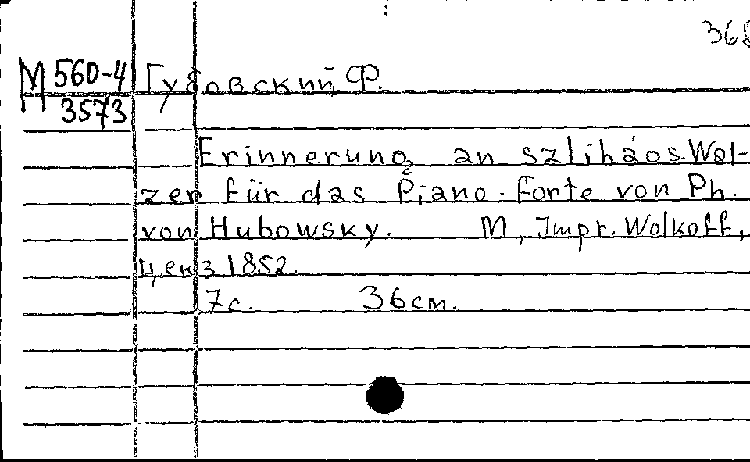 368
М 560-4 Губовский, Ф.
3573
Erinnerung an szlihaos Wal-
zer für das Piano-Forte von Ph.
von Hubowsky. М, Impr. Wolkoff,
ценз. 1852.
7 с. 36 см.